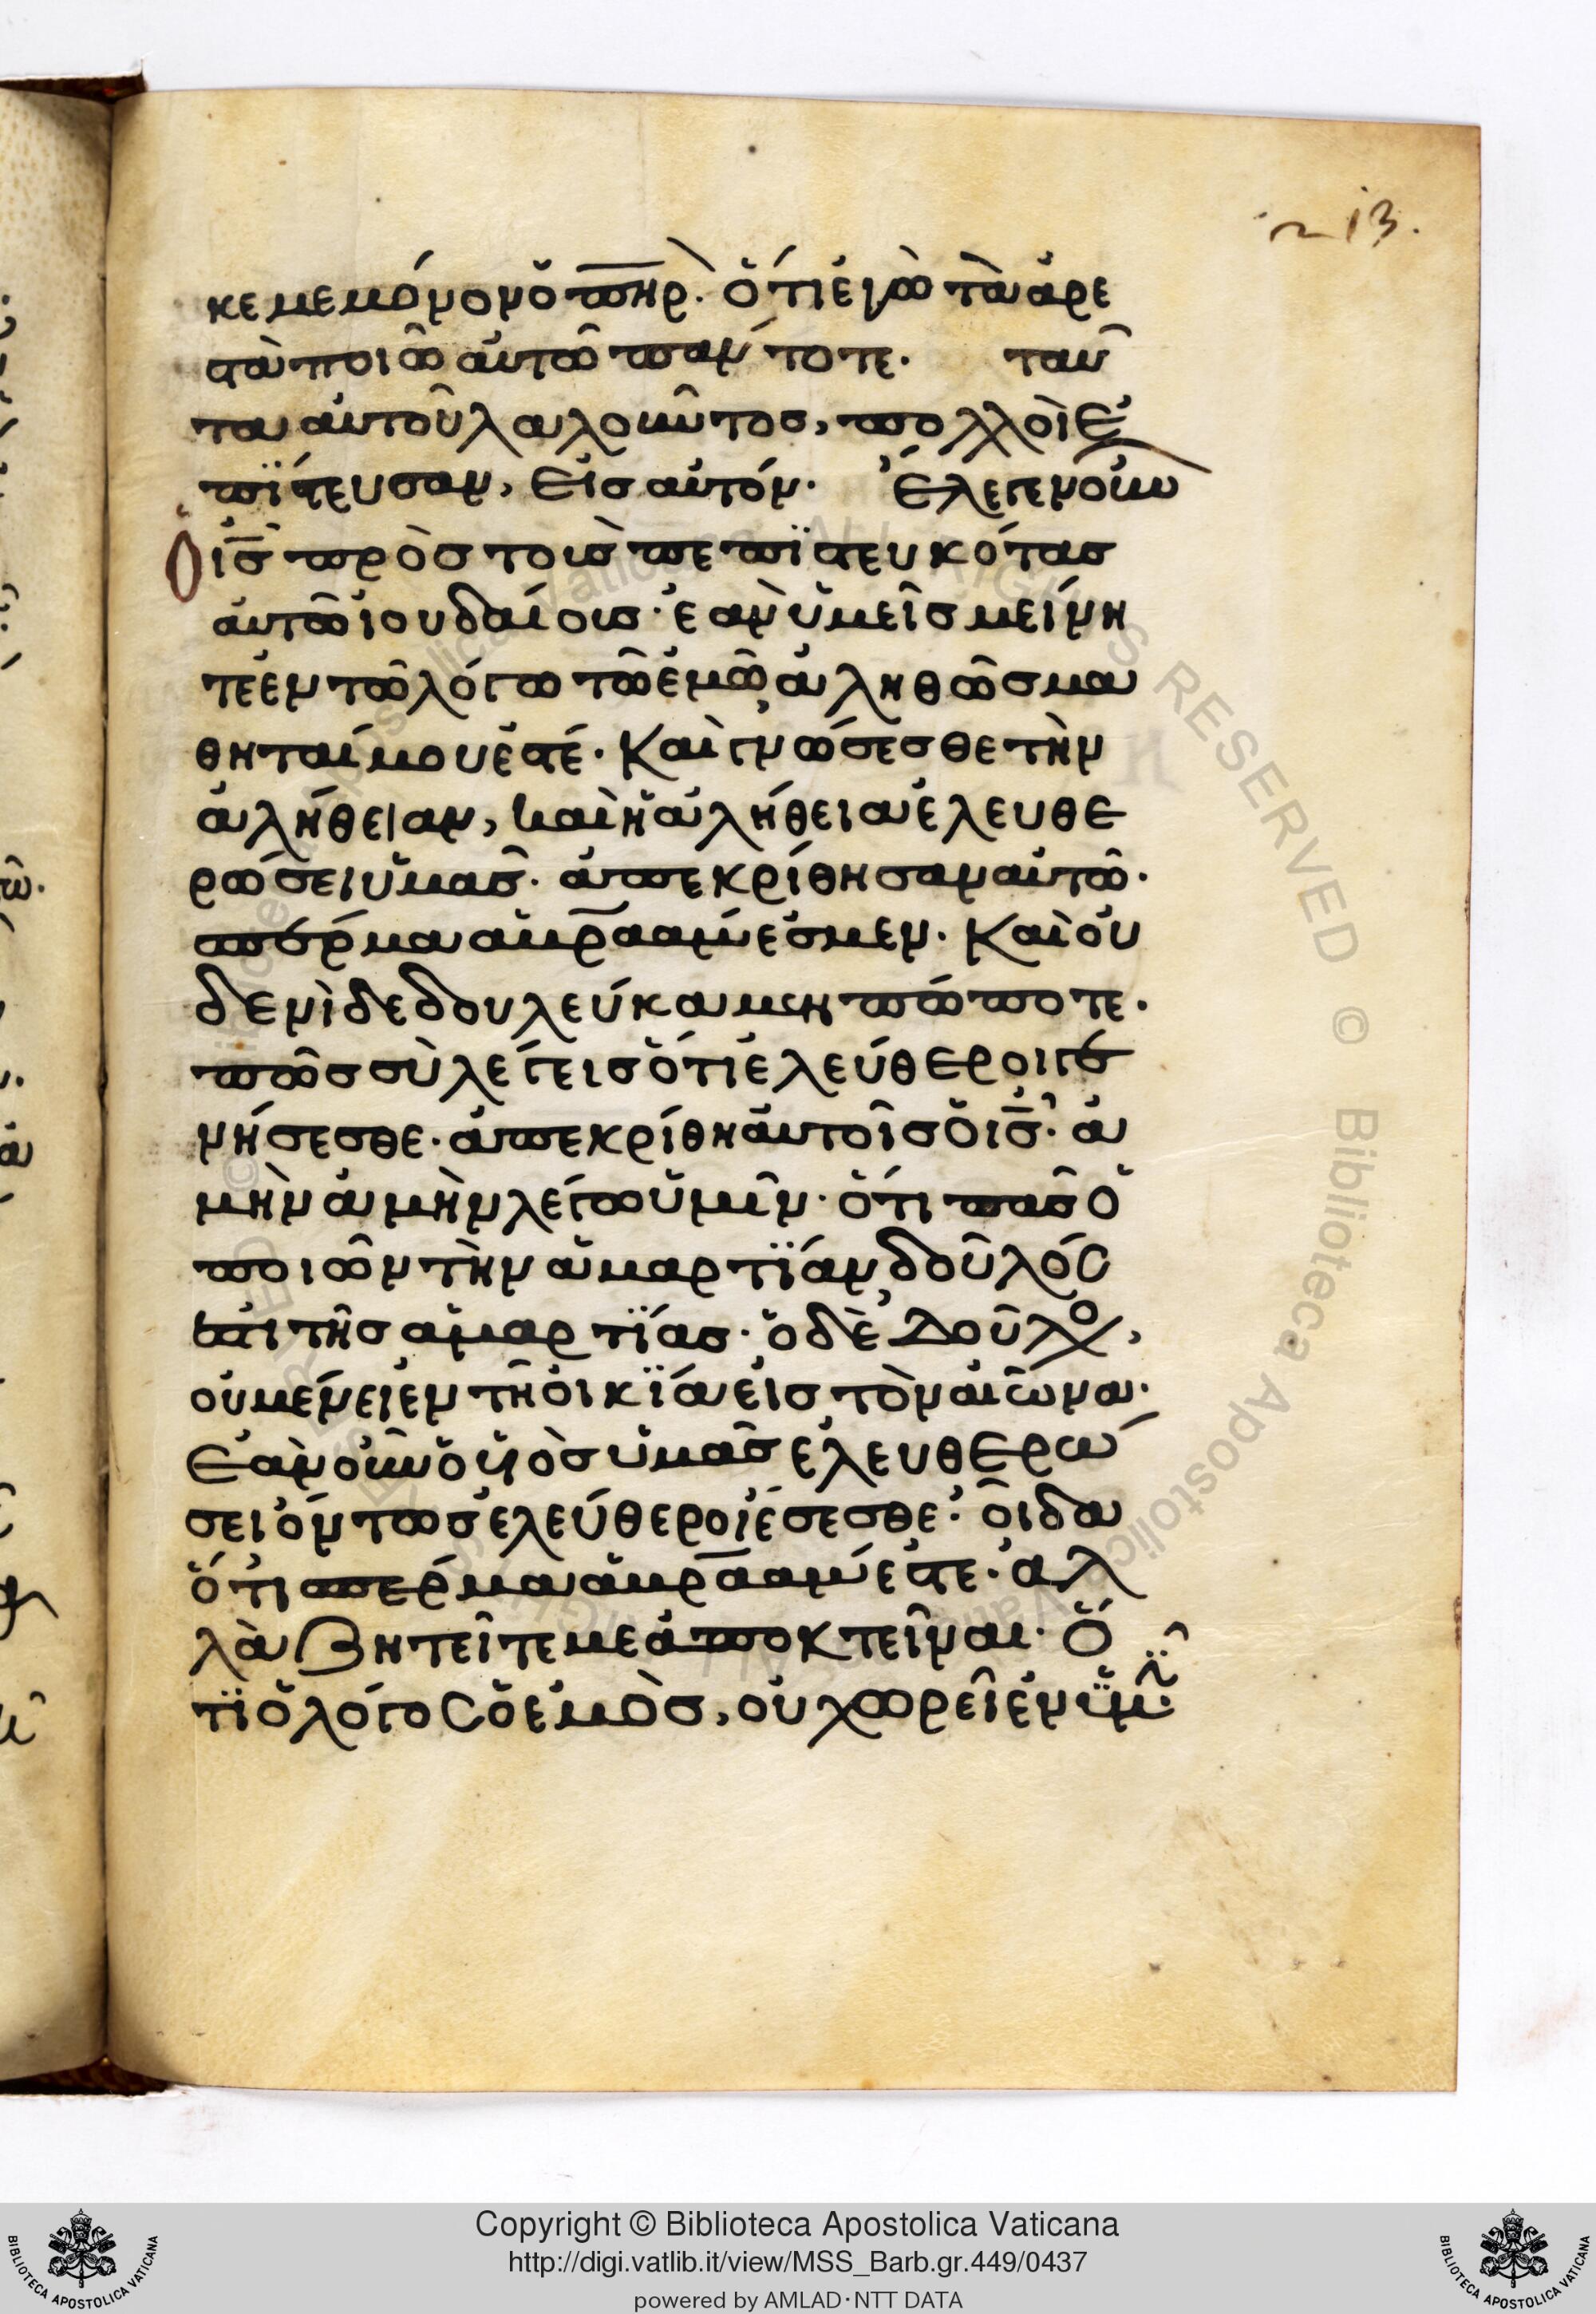 213.
κε με μόνον ὁ πηρ. ὅτι ἐγὼ τὰ ἀρε
στὰ ποιῶ αὐτῶ πάντοτε. ταῦ
τα αὐτοῦ λαλοῦντος, πολλοὶ ἐ
πίστευσαν, εἰς αὐτόν. ἔλεγεν οὖν
ὁ ις πρὸς τοὺς πεπιστευκότας
αὐτῶ ἰουδαίους· ἐὰν ὑμεῖς μείνη
τε ἐν τῶ λόγω τῶ ἐμῶ, ἀληθῶς μα
θηταί μου ἐστέ. Καὶ γνώσεσθε τὴν
ἀλήθειαν, καὶ ἡ ἀλήθεια ἐλευθε
ρώσει ὑμᾶς. ἀπεκρίθησαν αὐτῶ.
σπέρμα ἀβρααμ ἐσμεν. Καὶ οὐ
δενὶ δεδουλεύκαμεν πώποτε.
πῶς σὺ λέγεις ὅτι ἐλεύθεροι γε
νήσεσθε. ἀπεκρίθη αὐτοῖς ὁ ις. ἀ
μὴν ἀμὴν λέγω ὑμῖν. ὅτι πᾶς ὁ
ποιῶν τὴν ἁμαρτίαν, δοῦλός
ἐστι τῆς ἁμαρτίας. ὁ δὲ δοῦλος,
οὐ μένει ἐν τῆ οἰκία εἰς τὸν αἰῶνα.
Ἐὰν οὖν ὁ υἱὸς ὑμᾶς ἐλευθερώ
σει ὄντως ἐλεύθεροι ἔσεσθε. οἶδα
ὅτι σπέρμα ἀβρααμ ἐστε. ἀλ
λὰ ζητεῖτε με ἀποκτεῖναι. ὅ
τι ὁ λόγος ὁ ἐμὸς, οὐ χωρεῖ ἐν ὑμῖν.
Copyright © Biblioteca Apostolica Vaticana
http://digi.vatlib.it/view/MSS_Barb.gr.449/0437
powered by AMLAD·NTT DATA